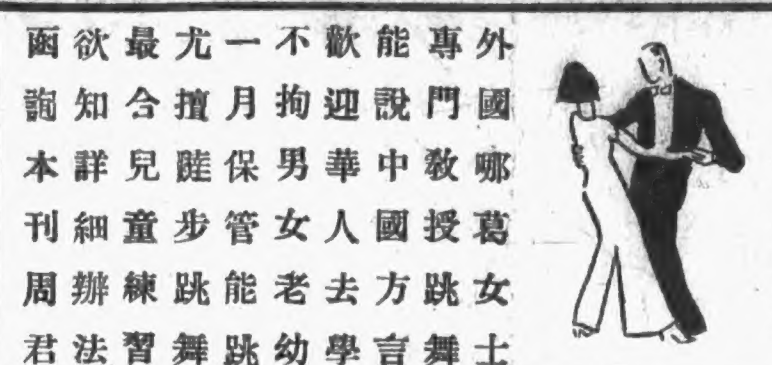 外國哪葛女士
專門教授跳舞
能說中國方言
歡迎華人去學
不拘男女老幼
一月保管能跳
尤擅踓步跳舞
最合兒童練習
欲知詳細辦法
函詢本刊周君